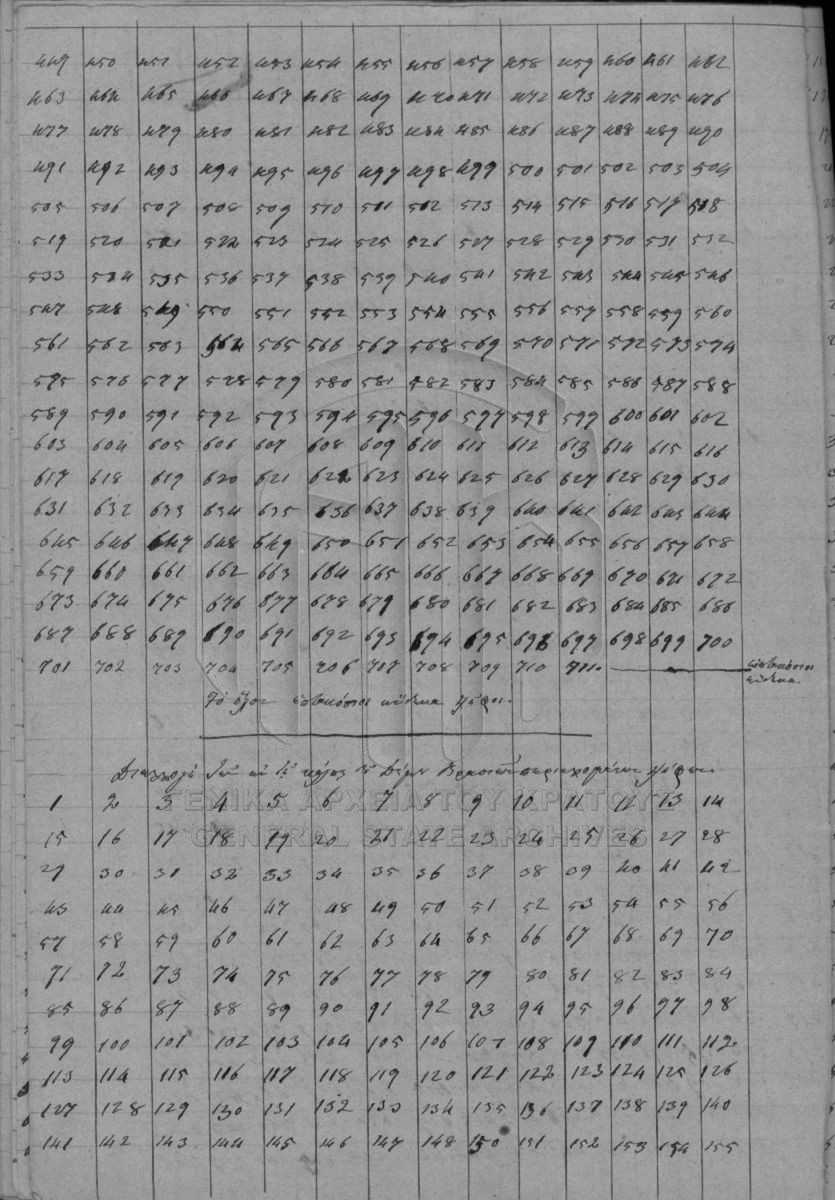 449 450 451 452 453 454 455 456 457 458 459 460 461 462
463 464 465 466 467 468 469 470 471 472 473 474 475 476
477 478 479 480 481 482 483 484 485 486 487 488 489 490
491 492 493 494 495 496 497 498 499 500 501 502 503 504
505 506 507 508 509 510 501 502 513 514 515 516 517 518
519 520 521 522 523 524 525 526 527 528 529 530 531 532
533 534 535 536 537 538 539 540 541 542 543 544 545 546
547 548 549 550 551 552 553 554 555 556 557 558 559 560
561 562 563 564 565 566 567 568 569 570 571 572 573 574
575 576 577 578 579 580 581 582 583 584 585 586 587 588
589 590 591 592 593 594 595 596 597 598 599 600 601 602
603 604 605 606 607 608 609 610 611 612 613 614 615 616
617 618 619 620 621 622 623 624 625 626 627 628 629 630
631 632 633 634 635 636 637 638 639 640 641 642 643 644
645 646 647 648 649 650 651 652 653 654 655 656 657 658
659 660 661 662 663 664 665 666 667 668 669 670 671 672
673 674 675 676 677 678 679 680 681 682 683 684 685 686
687 688 689 690 691 692 693 694 695 696 697 698 699 700
701 702 703 704 705 706 707 708 709 710 711 επτακόσιοι ένδεκα.
Το όλον επτακόσιοι ένδεκα ψήφοι.
ψήφων
1 2 3 4 5 6 7 8 9 10 11 12 13 14
ΓΕΝΙΚΑ ΑΡΧΕΙΑ ΤΟΥ ΚΡΑΤΟΥΣ
15 16 17 18 19 20 21 22 23 24 25 26 27 28
GENERAL STATE ARCHIVES
29 30 31 32 33 34 35 36 37 38 39 40 41 42
43 44 45 46 47 48 49 50 51 52 53 54 55 56
57 58 59 60 61 62 63 64 65 66 67 68 69 70
71 72 73 74 75 76 77 78 79 80 81 82 83 84
85 86 87 88 89 90 91 92 93 94 95 96 97 98
99 100 101 102 103 104 105 106 107 108 109 110 111 112
113 114 115 116 117 118 119 120 121 122 123 124 125 126
127 128 129 130 131 132 133 134 135 136 137 138 139 140
141 142 143 144 145 146 147 148 150 151 152 153 154 155